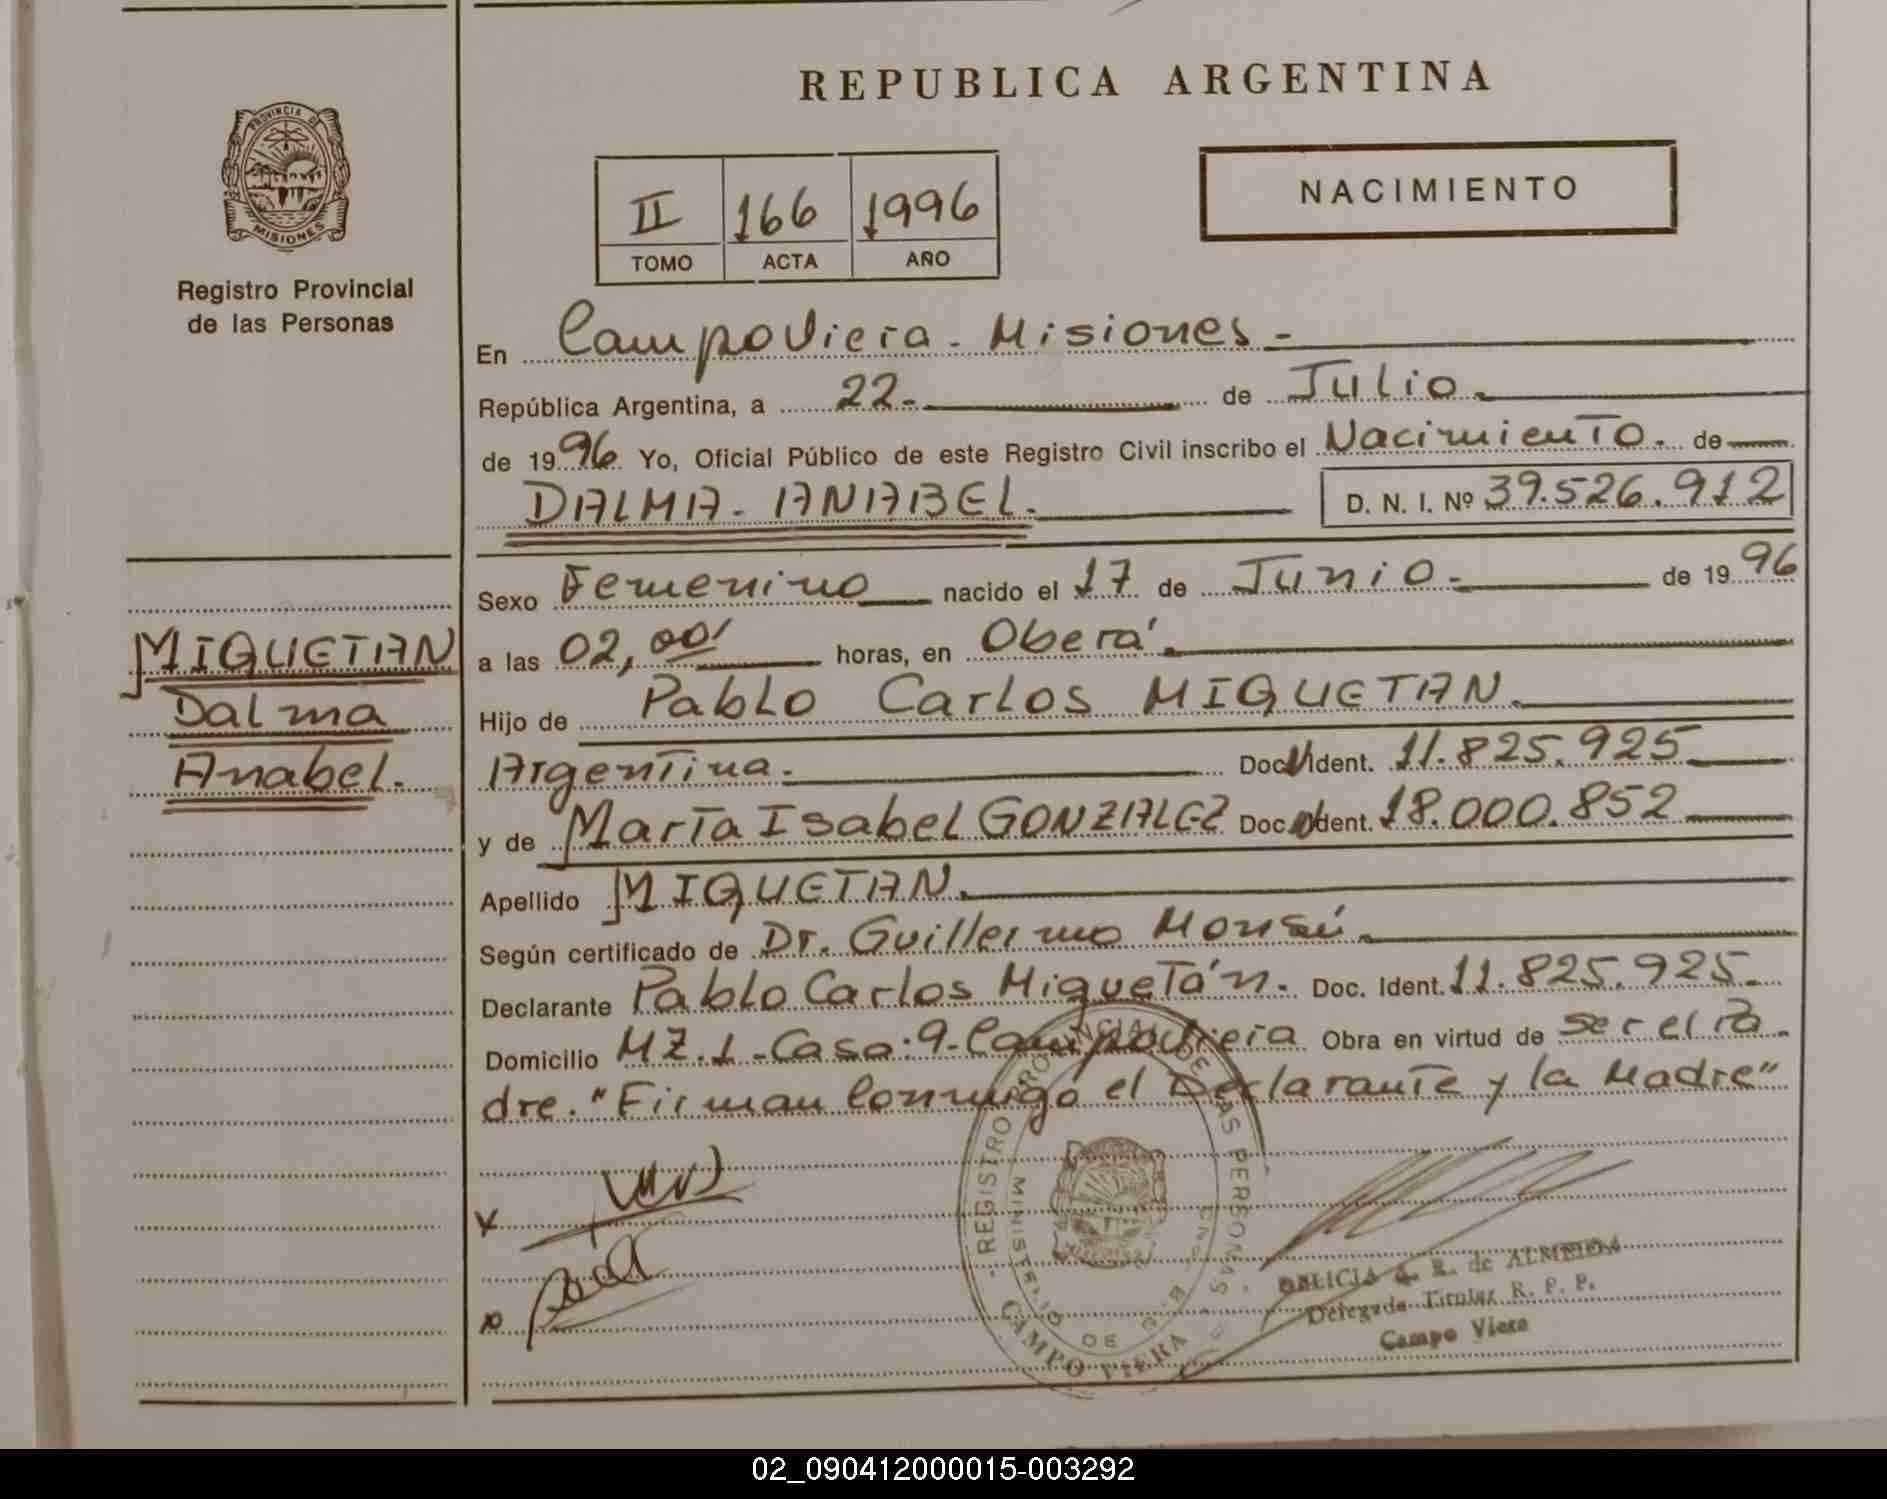 REPUBLICA ARGENTINA
PROVINCIA DE
MISIONES
Registro Provincial
de las Personas
II 166 1996
TOMO ACTA AÑO
NACIMIENTO
En Campo Viera - Misiones -
República Argentina, a 22- de Julio.
de 1996 Yo, Oficial Público de este Registro Civil inscribo el Nacimiento. de
DALMA - ANABEL. D. N. I. Nº 39.526.912
Sexo Femenino nacido el 17 de Junio - de 1996
MIQUETAN
Dalma
Anabel.
a las 02,00' horas, en Oberá.
Hijo de Pablo Carlos MIQUETAN.
Argentina. Doc. Ident. 11.825.925
y de María Isabel GONZALEZ Doc. Ident. 18.000.852
Apellido MIQUETAN.
Según certificado de Dr. Guillermo Monsú.
Declarante Pablo Carlos Miquetán. Doc. Ident. 11.825.925.
Domicilio MZ. 1 - Casa: 9 - Campo Viera Obra en virtud de ser el Pa-
dre. "Firman Conmigo el Declarante y la Madre"
REGISTRO PROVINCIAL DE LAS PERSONAS
MINISTERIO DE G.
CAMPO VIERA
R. de ALMEIDA
Delegada Titular R. P. P.
Campo Viera
02_090412000015-003292